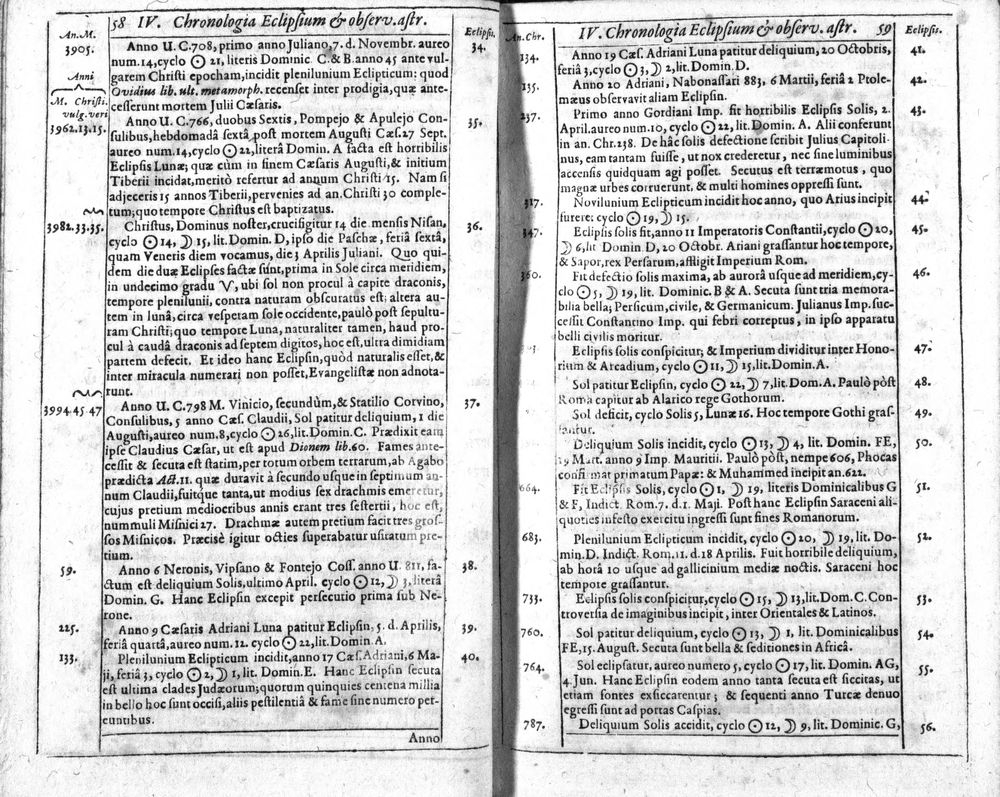 58 IV. Chronologia Eclipsium & observ. astr.
An. M.
Eclipsis.
3905.
Anno U. C. 708, primo anno Juliano, 7. d. Novembr. aureo
34.
num. 14, cyclo ☉ 21, literis Dominic. C. & B. anno 45 ante vul-
garem Christi epocham, incidit plenilunium Eclipticum: quod
Anni
Ovidius lib. ult. metamorph. recenset inter prodigia, quæ ante-
M. Christi.
cesserunt mortem Julii Cæsaris.
vulg. veri
Anno U. C. 766, duobus Sextis, Pompejo & Apulejo Con-
35.
3962. 13. 15.
sulibus, hebdomadâ sextâ post mortem Augusti Cæs. 27 Sept.
aureo num. 14, cyclo ☉ 22, literâ Domin. A facta est horribilis
Eclipsis Lunæ; quæ cùm in finem Cæsaris Augusti, & initium
Tiberii incidat, meritò refertur ad annum Christi 15. Nam si
adjeceris 15 annos Tiberii, pervenies ad an. Christi 30 comple-
tum; quo tempore Christus est baptizatus.
Christus, Dominus noster, crucifigitur 14 die mensis Nisan,
36.
3982. 33. 35.
cyclo ☉ 14, ☽ 15, lit. Domin. D, ipso die Paschæ, feriâ sextâ,
quam Veneris diem vocamus, die 3 Aprilis Juliani. Quo qui-
dem die duæ Eclipses factæ sunt, prima in Sole circa meridiem,
in undecimo gradu ♈, ubi sol non procul à capite draconis,
tempore plenilunii, contra naturam obscuratus est; altera au-
tem in lunâ, circa vesperam sole occidente, paulò post sepultu-
ram Christi; quo tempore Luna, naturaliter tamen, haud pro-
cul à caudâ draconis ad septem digitos, hoc est, ultra dimidiam
partem defecit. Et ideo hanc Eclipsin, quòd naturalis esset, &
inter miracula numerari non posset, Evangelistæ non adnota-
runt.
3994. 45. 47
Anno U. C. 798 M. Vinicio, secundùm, & Statilio Corvino,
37.
Consulibus, 5 anno Cæs. Claudii, Sol patitur deliquium, 1 die
Augusti, aureo num. 8, cyclo ☉ 26, lit. Domin. C. Prædixit eam
ipse Claudius Cæsar, ut est apud Dionem lib. 60. Fames ante-
cessit & secuta est statim, per totum orbem terrarum, ab Agabo
prædicta Act. 11. quæ duravit à secundo usque in septimum an-
num Claudii, fuitque tanta, ut modius sex drachmis emeretur,
cujus pretium mediocribus annis erant tres sestertii, hoc est,
nummuli Misnici 27. Drachmæ autem pretium facit tres gros-
sos Misnicos. Præcisè igitur octies superabatur usitatum pre-
tium.
59.
Anno 6 Neronis, Vipsano & Fontejo Coss. anno U. 811, fa-
38.
ctum est deliquium Solis, ultimo April. cyclo ☉ 12, ☽ 3, literâ
Domin. G. Hanc Eclipsin excepit persecutio prima sub Ne-
rone.
225.
Anno 9 Cæsaris Adriani Luna patitur Eclipsin, 5. d. Aprilis,
39.
feriâ quartâ, aureo num. 12. cyclo ☉ 22, lit. Domin. A.
133.
Plenilunium Eclipticum incidit, anno 17 Cæs. Adriani, 6 Ma-
40.
ji, feriâ 3, cyclo ☉ 2, ☽ 1, lit. Domin. E. Hanc Eclipsin secuta
est ultima clades Judæorum; quorum quinquies centena millia
in bello hoc sunt occisi, aliis pestilentiâ & fame sine numero per-
euntibus.
Anno
IV. Chronologia Eclipsium & observ. astr. 59
An. Chr.
Eclipsis.
134.
Anno 19 Cæs. Adriani Luna patitur deliquium, 20 Octobris,
41.
feriâ 3, cyclo ☉ 3, ☽ 2, lit. Domin. D.
135.
Anno 20 Adriani, Nabonassari 883, 6 Martii, feriâ 2 Ptole-
42.
mæus observavit aliam Eclipsin.
237.
Primo anno Gordiani Imp. fit horribilis Eclipsis Solis, 2.
43.
April. aureo num. 10, cyclo ☉ 22, lit. Domin. A. Alii conferunt
in an. Chr. 238. De hâc solis defectione scribit Julius Capitoli-
nus, eam tantam fuisse, ut nox crederetur, nec sine luminibus
accensis quidquam agi posset. Secutus est terræmotus, quo
magnæ urbes corruerunt, & multi homines oppressi sunt.
317.
Novilunium Eclipticum incidit hoc anno, quo Arius incipit
44.
furere: cyclo ☉ 19, ☽ 15.
347.
Eclipsis solis fit, anno 11 Imperatoris Constantii, cyclo ☉ 20,
45.
☽ 6, lit Domin. D, 20 Octobr. Ariani grassantur hoc tempore,
& Sapor, rex Persarum, affligit Imperium Rom.
360.
Fit defectio solis maxima, ab aurorâ usque ad meridiem, cy-
46.
clo ☉ 5, ☽ 19, lit. Dominic. B & A. Secuta sunt tria memora-
bilia bella; Persicum, civile, & Germanicum. Julianus Imp. suc-
cessit Constantino Imp. qui febri correptus, in ipso apparatu
belli civilis moritur.
Eclipsis solis conspicitur; & Imperium dividitur inter Hono-
47.
rium & Arcadium, cyclo ☉ 11, ☽ 15, lit. Domin. A.
Sol patitur Eclipsin, cyclo ☉ 22, ☽ 7, lit. Dom. A. Paulò pòst
48.
Roma capitur ab Alarico rege Gothorum.
Sol deficit, cyclo Solis 5, Lunæ 16. Hoc tempore Gothi gras-
49.
santur.
Deliquium Solis incidit, cyclo ☉ 13, ☽ 4, lit. Domin. FE,
50.
19 Mart. anno 9 Imp. Mauritii. Paulò pòst, nempe 606, Phocas
confirmat primatum Papæ: & Muhammed incipit an. 622.
664.
Fit Eclipsis Solis, cyclo ☉ 1, ☽ 19, literis Dominicalibus G
51.
& F, Indict. Rom. 7. d. 1. Maji. Post hanc Eclipsin Saraceni ali-
quoties infesto exercitu ingressi sunt fines Romanorum.
683.
Plenilunium Eclipticum incidit, cyclo ☉ 20, ☽ 19, lit. Do-
52.
min. D. Indict. Rom. 11. d. 18 Aprilis. Fuit horribile deliquium,
ab horâ 10 usque ad gallicinium mediæ noctis. Saraceni hoc
tempore grassantur.
733.
Eclipsis solis conspicitur, cyclo ☉ 15, ☽ 13, lit. Dom. C. Con-
53.
troversia de imaginibus incipit, inter Orientales & Latinos.
760.
Sol patitur deliquium, cyclo ☉ 13, ☽ 1, lit. Dominicalibus
54.
FE, 15. August. Secuta sunt bella & seditiones in Africâ.
764.
Sol eclipsatur, aureo numero 5, cyclo ☉ 17, lit. Domin. AG,
55.
4. Jun. Hanc Eclipsin eodem anno tanta secuta est siccitas, ut
etiam fontes exsiccarentur; & sequenti anno Turcæ denuo
egressi sunt ad portas Caspias.
787.
Deliquium Solis accidit, cyclo ☉ 12, ☽ 9, lit. Dominic. G,
56.